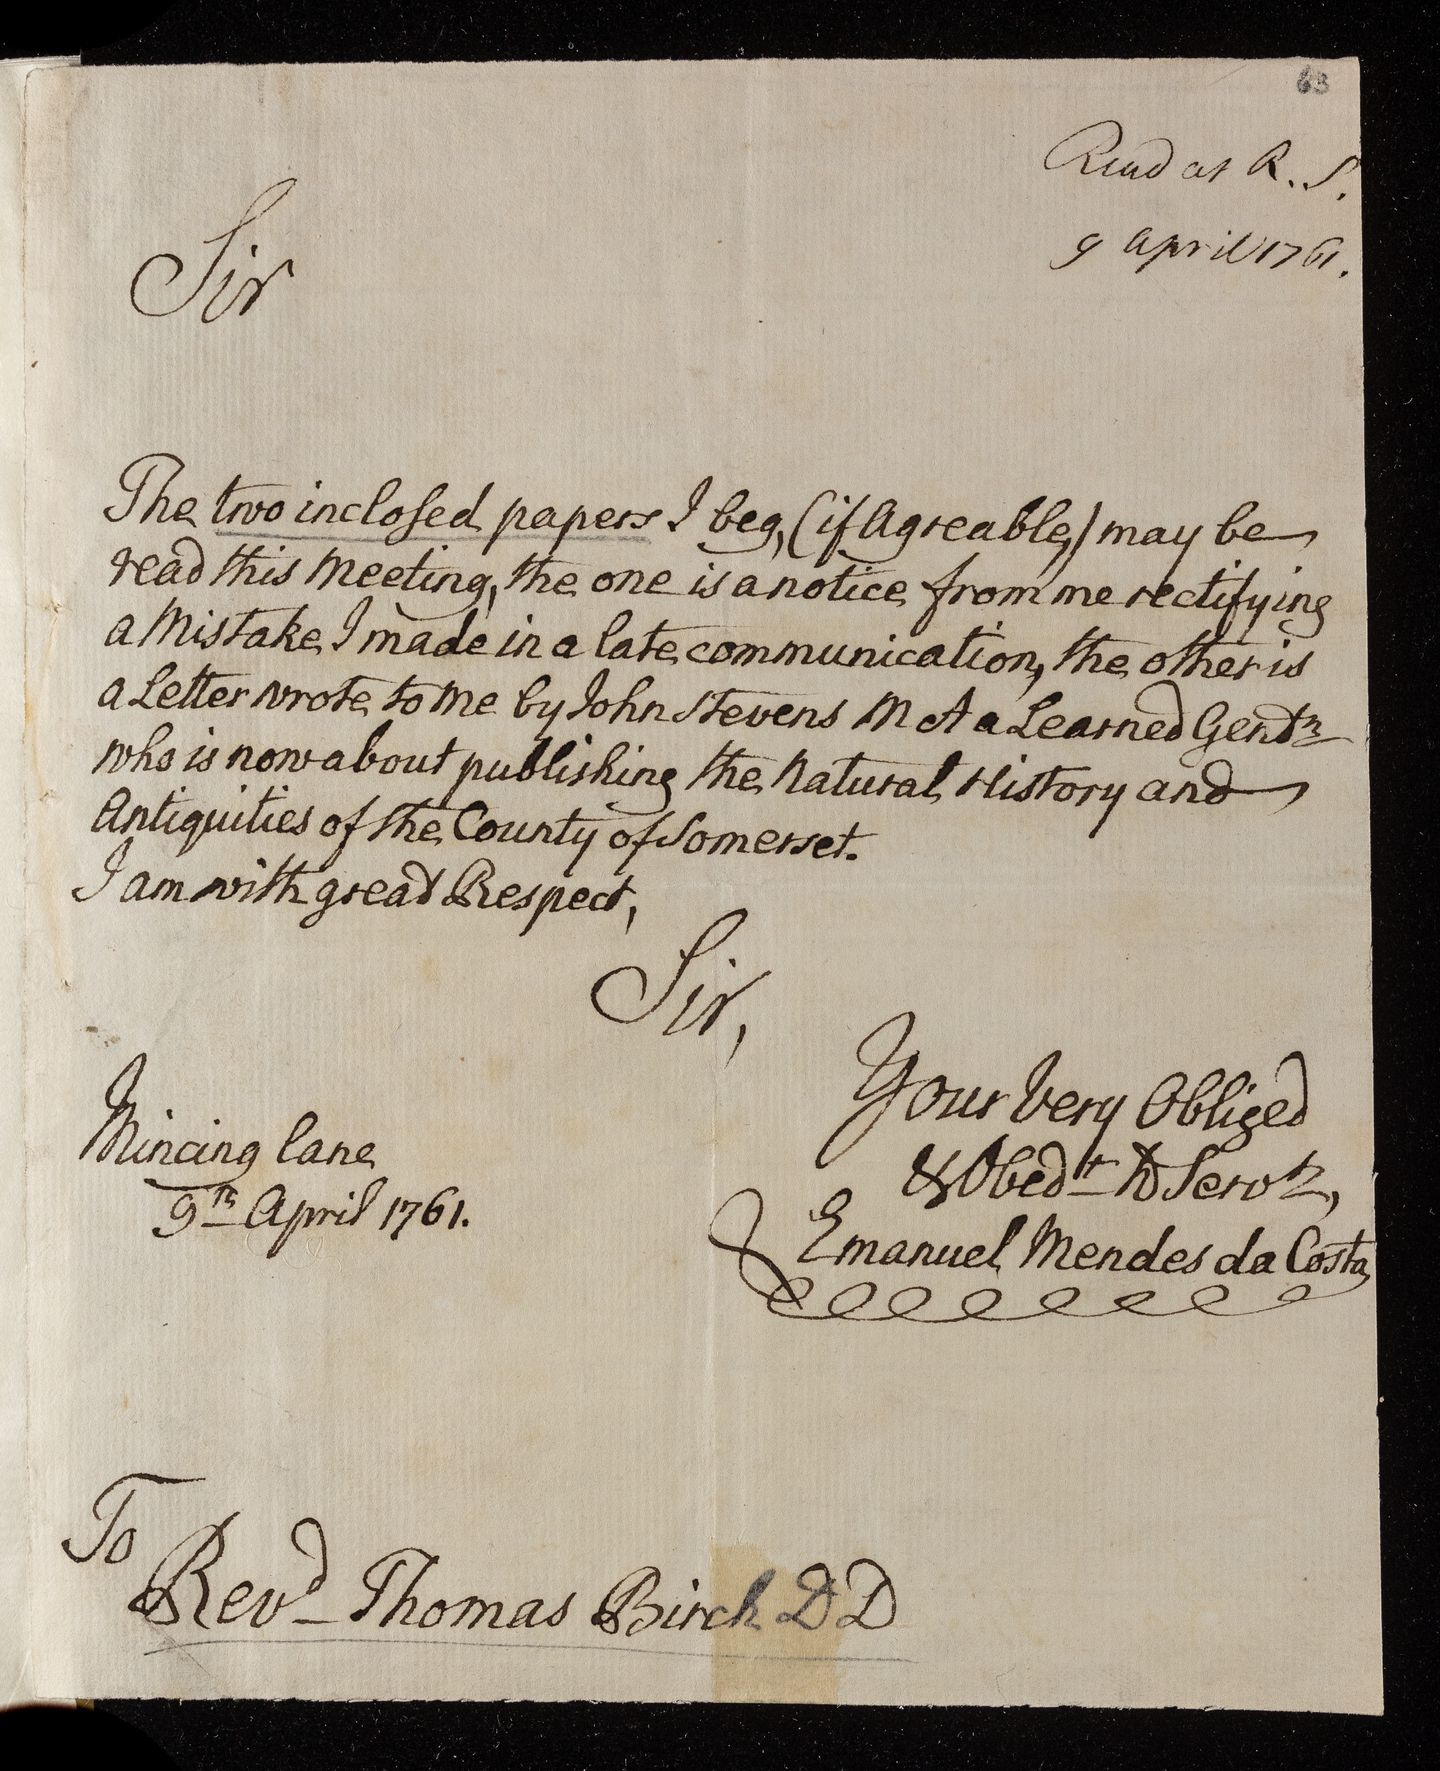 63
Read at R. S.
9 April 1761.
Sir
The two inclosed papers I beg, (if Agreable,) may be
read this Meeting, the one is a notice from me rectifying
a Mistake I made in a late communication, the other is
a Letter wrote to me by John Stevens M A a Learned Gentn
who is now about publishing the Natural History and
Antiquities of the County of Somerset.
I am with great Respect,
Sir,
Your Very Obliged
& Obedt H Servt,
Emanuel Mendes da Costa
Mincing lane
9th April 1761.
To
Revd Thomas Birch D D